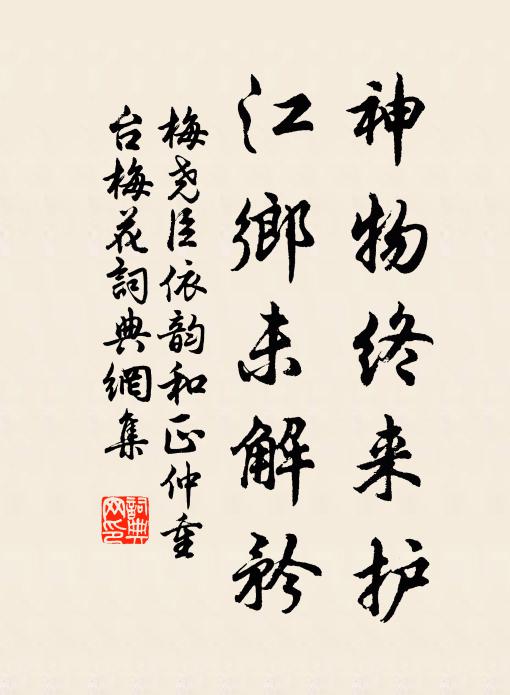 神物终来护
江鄉未解矜
梅尧臣依韵和正仲重
台梅花詞典網集
詞典网印